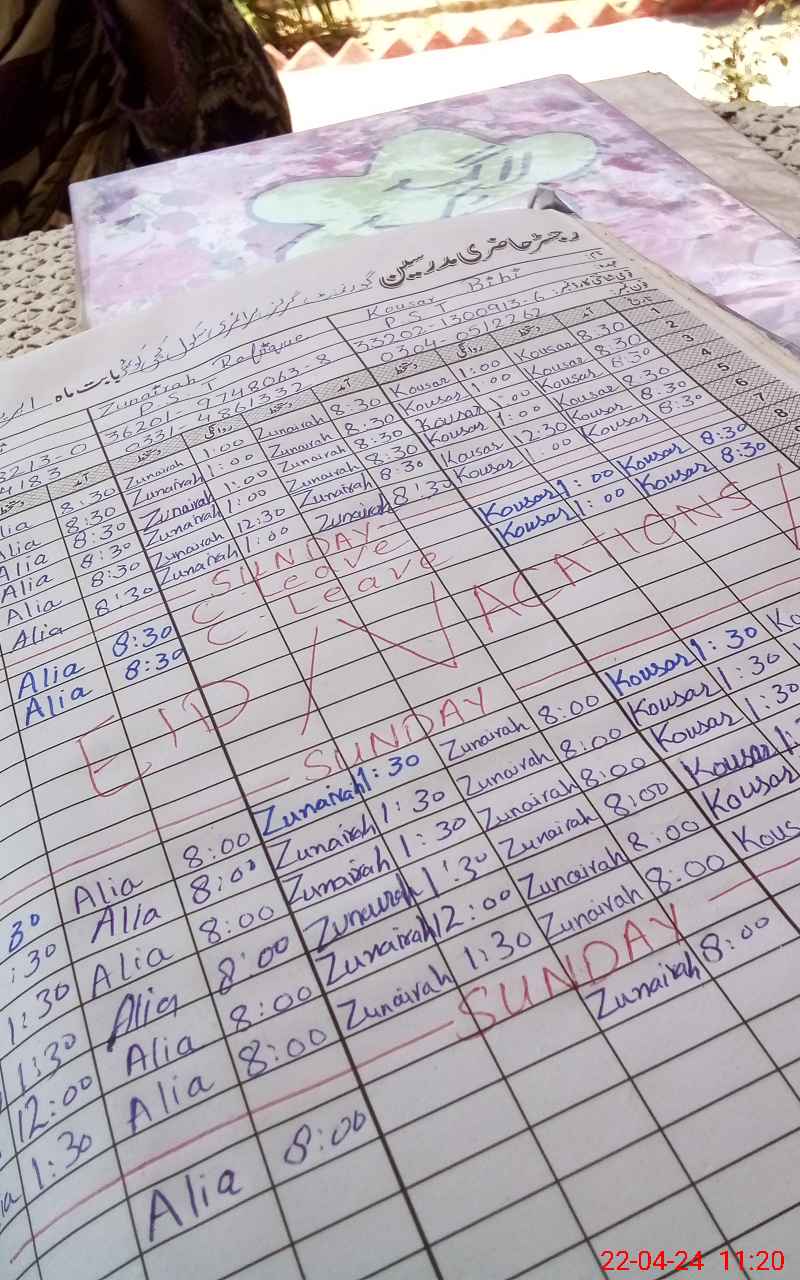 رجسٹر حاضری مدرسین
بابت ماہ
Zunairah Rafique
Kousar Bibi
P S T
P S T
36201-9748063-8
33202-1300913-6
0331-4861332
0304-0512762
1
2
3
4
5
6
7
8
8:30 Zunairah 1:00 Zunairah 8:30 Kousar 1:00 Kousar 8:30
8:30 Zunairah 1:00 Zunairah 8:30 Kousar 1:00 Kousar 8:30
Alia 8:30 Zunairah 1:00 Zunairah 8:30 Kousar 1:00 Kousar 8:30
Alia 8:30 Zunairah 1:00 Zunairah 8:30 Kousar 1:00 Kousar 8:30
Alia 8:30 Zunairah 12:30 Zunairah 8:30 Kousar 12:30 Kousar 8:30
Alia 8:30 Zunairah 1:00 Zunairah 8:30 Kousar 1:00 Kousar 8:30
SUNDAY
Alia 8:30 C. Leave Kousar 1:00 Kousar 8:30
Alia 8:30 C. Leave Kousar 1:00 Kousar 8:30
EID / VACATIONS /
SUNDAY
30 Alia 8:00 Zunairah 1:30 Zunairah 8:00 Kousar 1:30
:30 Alia 8:00 Zunairah 1:30 Zunairah 8:00 Kousar 1:30
1:30 Alia 8:00 Zunairah 1:30 Zunairah 8:00 Kousar 1:30
1:30 Alia 8:00 Zunairah 1:30 Zunairah 8:00 Kousar
12:00 Alia 8:00 Zunairah 12:00 Zunairah 8:00 Kousar
1:30 Alia 8:00 Zunairah 1:30 Zunairah 8:00
SUNDAY
Alia 8:00 Zunairah 8:00
22-04-24 11:20